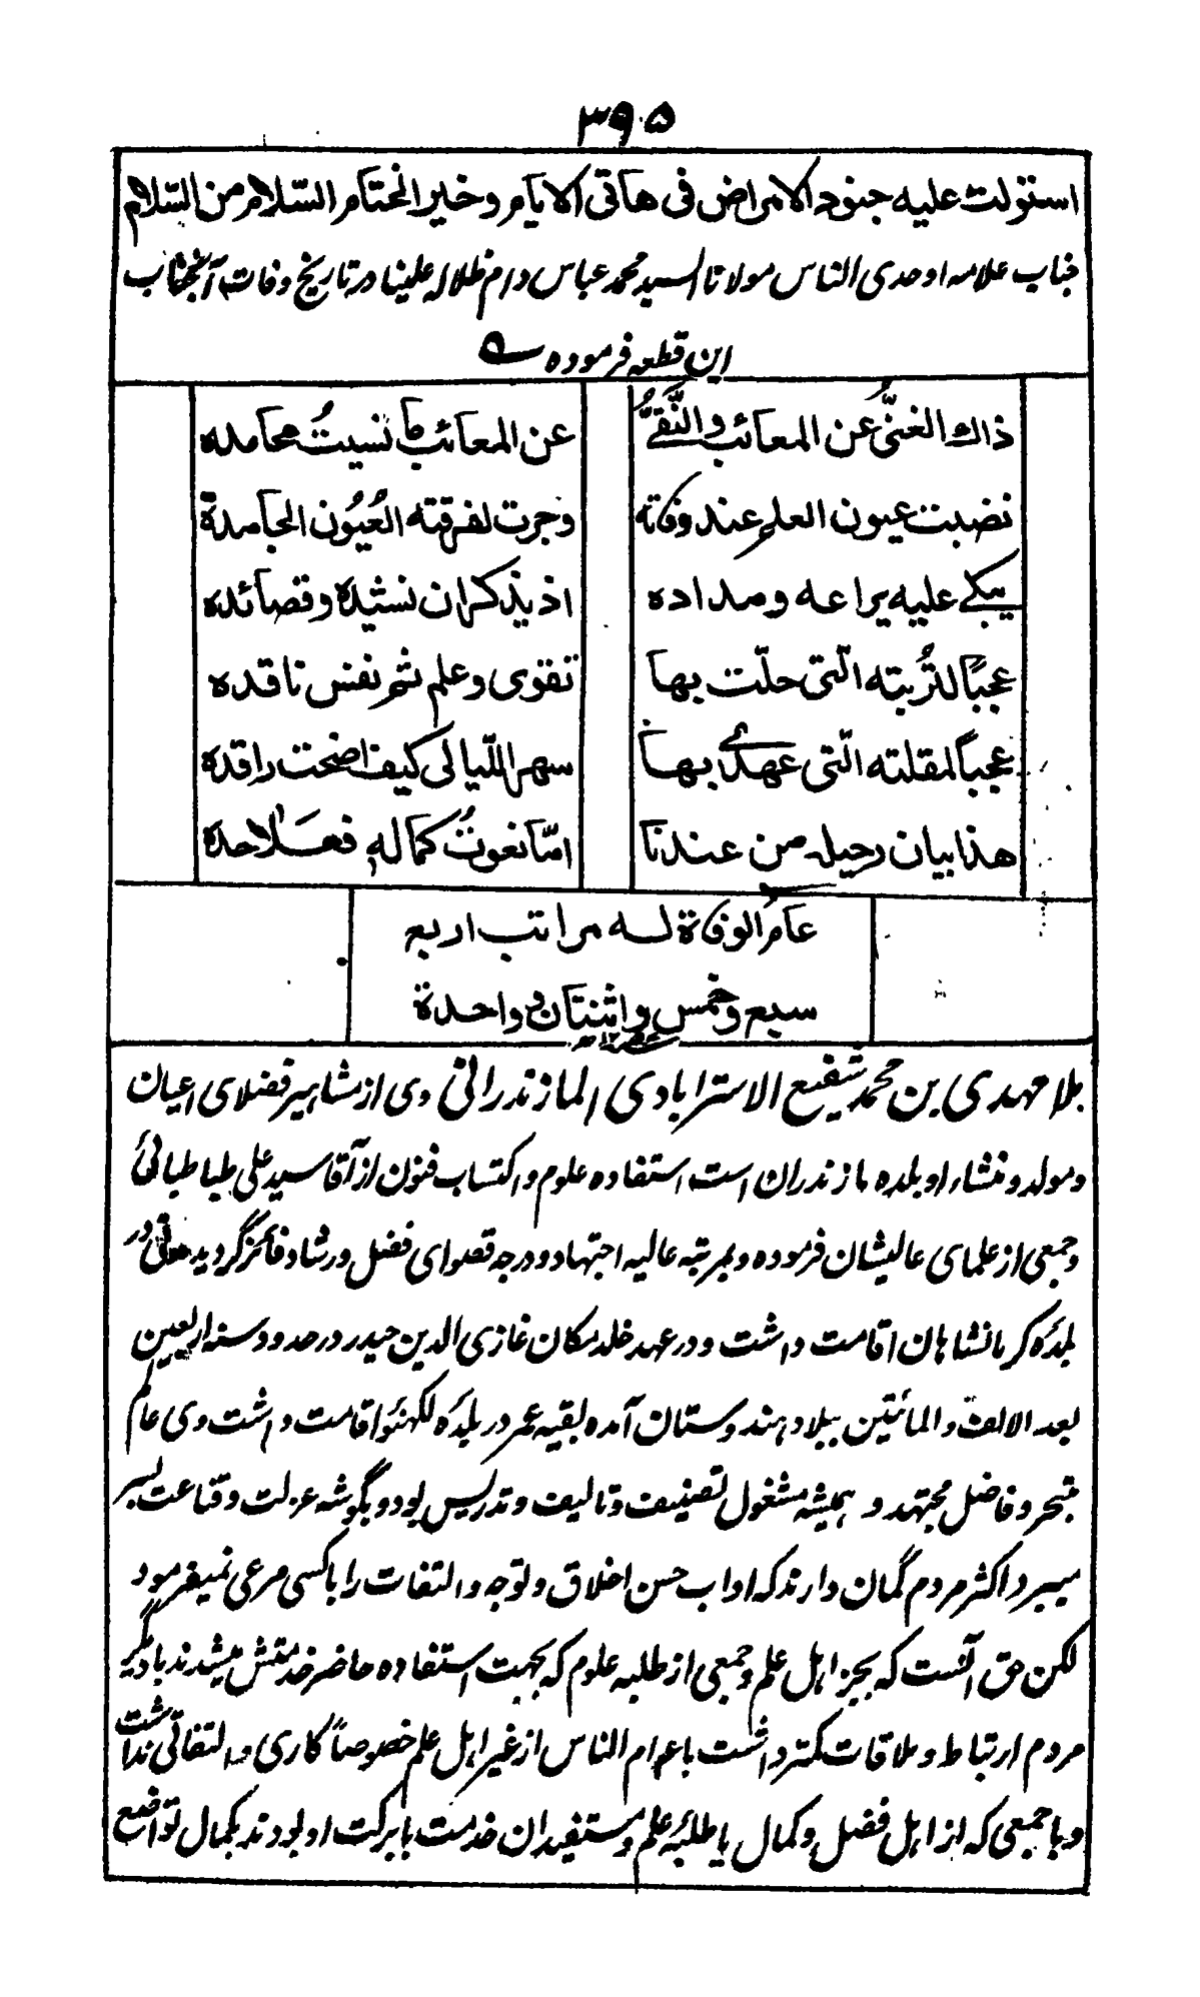 ۳۹۵
استولت علیه جنود الامراض فی هاتی الایام وخیر الختام السّلام من السّلام
جناب علامه اوحدی الناس مولانا السید محمد عباس دام ظلاله علینا در تاریخ وفات آنجناب
این قطعه فرموده
ذاك الغنیُّ عن المعائب والنَّقیُّ عن المعائب ما نسیتُ محامده
نضبت عیون العلم عند وفاته وجرت لفرقته العُیُون الجامدة
یبکے علیه یراعه ومداده اذ یذکران نشیده وقصائده
عجبًا لتُربته الّتی حلّت بها تقوی وعلم ثم نفس ناقده
عجباً لمقلته الّتی عهدے بها سهر اللّیالی کیف اضحت راقدة
هذا بیان رحیله من عندنا امّا نعوتُ کماله فعلاحدة
عام الوفاة له مراتب اربع
سبع وخمس واثنتان وواحدة
ملا مهدی بن محمد شفیع الاسترابادی المازندرانی وی از مشاهیر فضلای اعیان
ومولد ومنشاء او بلده مازندران است استفاده علوم واکتساب فنون از آقا سید علی طباطبائی
وجمعی از علمای عالیشان فرموده وبمرتبه عالیه اجتهاد ودرجه قصوای فضل ورشاد فائز گردیده مدتی در
بلدۀ کرمانشاهان اقامت داشت ودر عهد خلد مکان غازی الدین حیدر در حدود سنه اربعین
بعد الالف والمائتین ببلاد هندوستان آمده بقیه عمر در بلدۀ لکهنئو اقامت داشت وی عالم
متبحر وفاضل مجتهد و همیشه مشغول تصنیف وتالیف وتدریس بود وبگوشه عزلت وقناعت بسر
میبرد اکثر مردم گمان دارند که اداب حسن اخلاق وتوجه والتفات را با کسی مرعی نمیفرمود
لکن حق آنست که بجز اهل علم وجمعی از طلبه علوم که بجهت استفاده حاضر خدمتش میشدند با دیگر
مردم ارتباط وملاقات کمتر داشت با عوام الناس از غیر اهل علم خصوصاً کاری والتفاتی نداشت
وبا جمعی که از اهل فضل وکمال یا طلبۀ علم ومستفیدان خدمت بابرکت او بودند بکمال تواضع